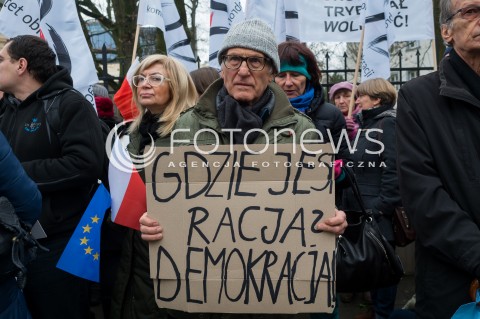 ket ob
TRYB
WOL ĆI
FOTONEWS
AGENCJA FOTOGRAFICZNA
GDZIE JEST
RACJA?
DEMOKRACJA!